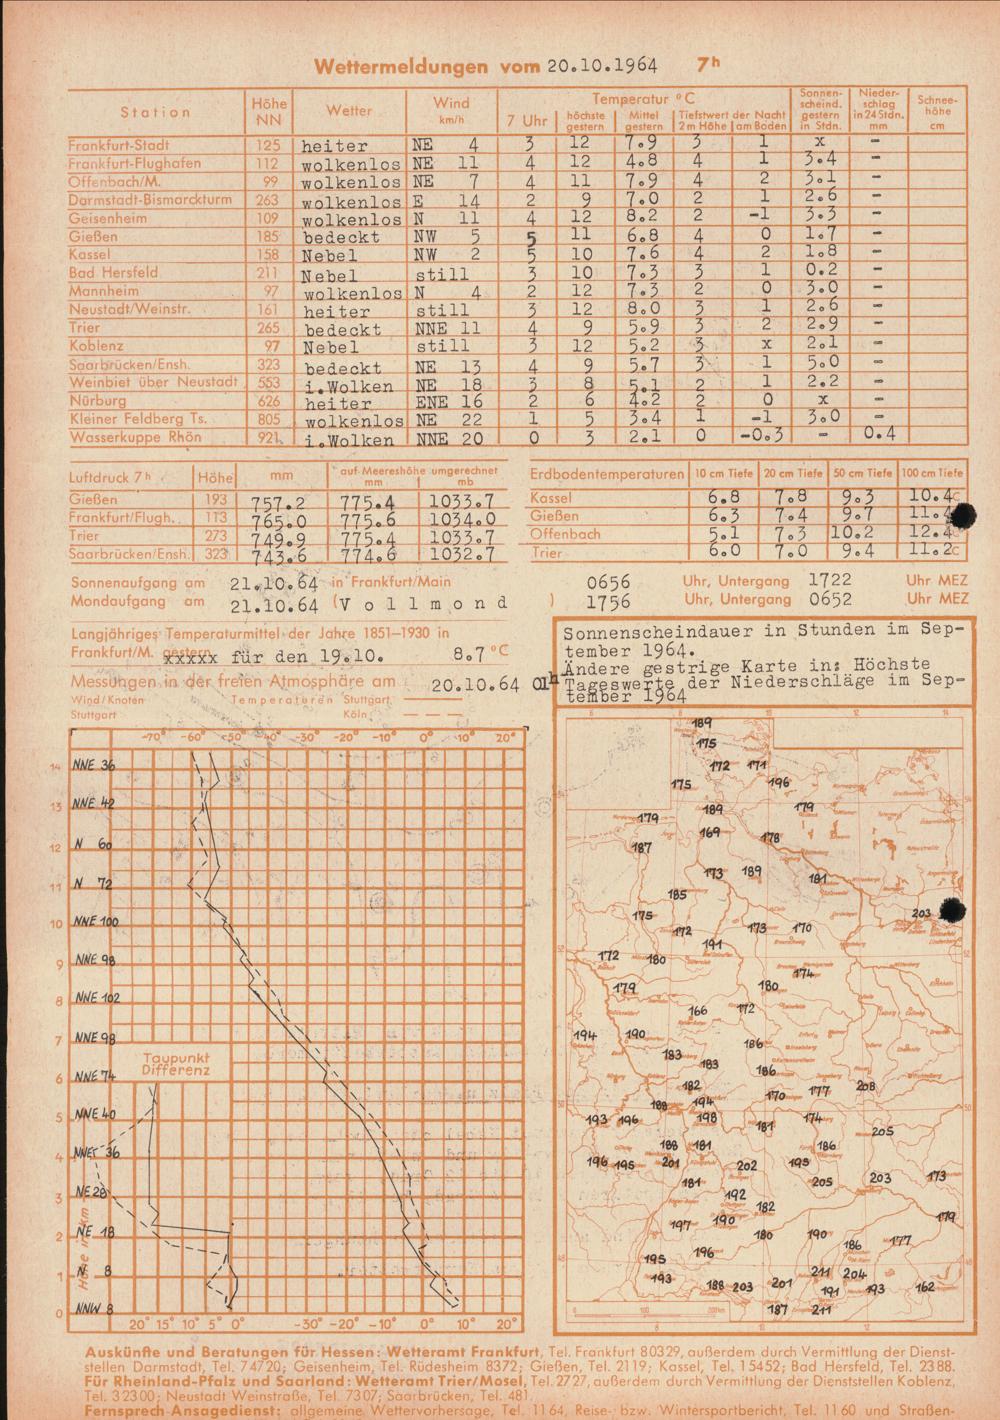 Wettermeldungen vom 20.10.1964 7h
Station Höhe NN Wetter Wind km/h Temperatur °C 7 Uhr höchste gestern Mittel gestern Tiefstwert der Nacht 2 m Höhe am Boden Sonnen-scheind. gestern in Stdn. Nieder-schlag in 24 Stdn. mm Schnee-höhe cm
Frankfurt-Stadt 125 heiter NE 4 3 12 7.9 3 1 x -
Frankfurt-Flughafen 112 wolkenlos NE 11 4 12 4.8 4 1 3.4 -
Offenbach/M. 99 wolkenlos NE 7 4 11 7.9 4 2 3.1 -
Darmstadt-Bismarckturm 263 wolkenlos E 14 2 9 7.0 2 1 2.6 -
Geisenheim 109 wolkenlos N 11 4 12 8.2 2 -1 3.3 -
Gießen 185 bedeckt NW 5 5 11 6.8 4 0 1.7 -
Kassel 158 Nebel NW 2 5 10 7.6 4 2 1.8 -
Bad Hersfeld 211 Nebel still 3 10 7.3 3 1 0.2 -
Mannheim 97 wolkenlos N 4 2 12 7.3 2 0 3.0 -
Neustadt/Weinstr. 161 heiter still 3 12 8.0 3 1 2.6 -
Trier 265 bedeckt NNE 11 4 9 5.9 3 2 2.9 -
Koblenz 97 Nebel still 3 12 5.2 3 x 2.1 -
Saarbrücken/Ensh. 323 bedeckt NE 13 4 9 5.7 3 1 5.0 -
Weinbiet über Neustadt 553 i.Wolken NE 18 3 8 5.1 2 1 2.2 -
Nürburg 626 heiter ENE 16 2 6 4.2 2 0 x -
Kleiner Feldberg Ts. 805 wolkenlos NE 22 1 5 3.4 1 -1 3.0 -
Wasserkuppe Rhön 921 i.Wolken NNE 20 0 3 2.1 0 -0.3 - 0.4
Luftdruck 7 h Höhe mm auf Meereshöhe umgerechnet mm mb
Gießen 193 757.2 775.4 1033.7
Frankfurt/Flugh. 113 765.0 775.6 1034.0
Trier 273 749.9 775.4 1033.7
Saarbrücken/Ensh. 323 743.6 774.6 1032.7
Erdbodentemperaturen 10 cm Tiefe 20 cm Tiefe 50 cm Tiefe 100 cm Tiefe
Kassel 6.8 7.8 9.3 10.4
Gießen 6.3 7.4 9.7 11.4
Offenbach 5.1 7.3 10.2 12.4
Trier 6.0 7.0 9.4 11.2
Sonnenaufgang am 21.10.64 in Frankfurt/Main 0656 Uhr, Untergang 1722 Uhr MEZ
Mondaufgang am 21.10.64 (V o l l m o n d ) 1756 Uhr, Untergang 0652 Uhr MEZ
Langjähriges Temperaturmittel der Jahre 1851-1930 in
Frankfurt/M. gestern xxxxx für den 19.10. 8.7 °C
Messungen in der freien Atmosphäre am 20.10.64 01h
Wind/Knoten Temperaturen Stuttgart
Stuttgart Köln
Sonnenscheindauer in Stunden im Sep-
tember 1964.
Ändere gestrige Karte in: Höchste
Tageswerte der Niederschläge im Sep-
tember 1964
-70° -60° -50° -40° -30° -20° -10° 0° 10° 20°
14 NNE 36
13 NNE 42
12 N 60
11 N 72
10 NNE 100
9 NNE 98
8 NNE 102
7 NNE 98
Taupunkt
Differenz
6 NNE 74
5 NNE 40
4 NNE 36
3 NE 28
2 NE 18
1 N 8
0 NNW 8
Höhe in km
20° 15° 10° 5° 0° -30° -20° -10° 0° 10° 20°
189
175
172 171
175 196
189 179
179
169 178
187
173 189 181
185
175 203
172 173 170
191
172 180
174
179 180
166 172
194 190 186
183 183
186
182 170 177 208
188 194
193 196 198 181 174
205
188 181 186
196 195 201 202 195
181 205 203 173
192
182
197 190 179
180 190 186 177
195 196
193 211 204
188 203 201 191 193 162
187 211
Auskünfte und Beratungen für Hessen: Wetteramt Frankfurt, Tel. Frankfurt 80329, außerdem durch Vermittlung der Dienst-
stellen Darmstadt, Tel. 74720; Geisenheim, Tel. Rüdesheim 8372; Gießen, Tel. 2119; Kassel, Tel. 15452; Bad Hersfeld, Tel. 2388.
Für Rheinland-Pfalz und Saarland: Wetteramt Trier/Mosel, Tel. 2727, außerdem durch Vermittlung der Dienststellen Koblenz,
Tel. 32300; Neustadt Weinstraße, Tel. 7307; Saarbrücken, Tel. 481.
Fernsprech-Ansagedienst: allgemeine Wettervorhersage, Tel. 1164, Reise- bzw. Wintersportbericht, Tel. 1160 und Straßen-